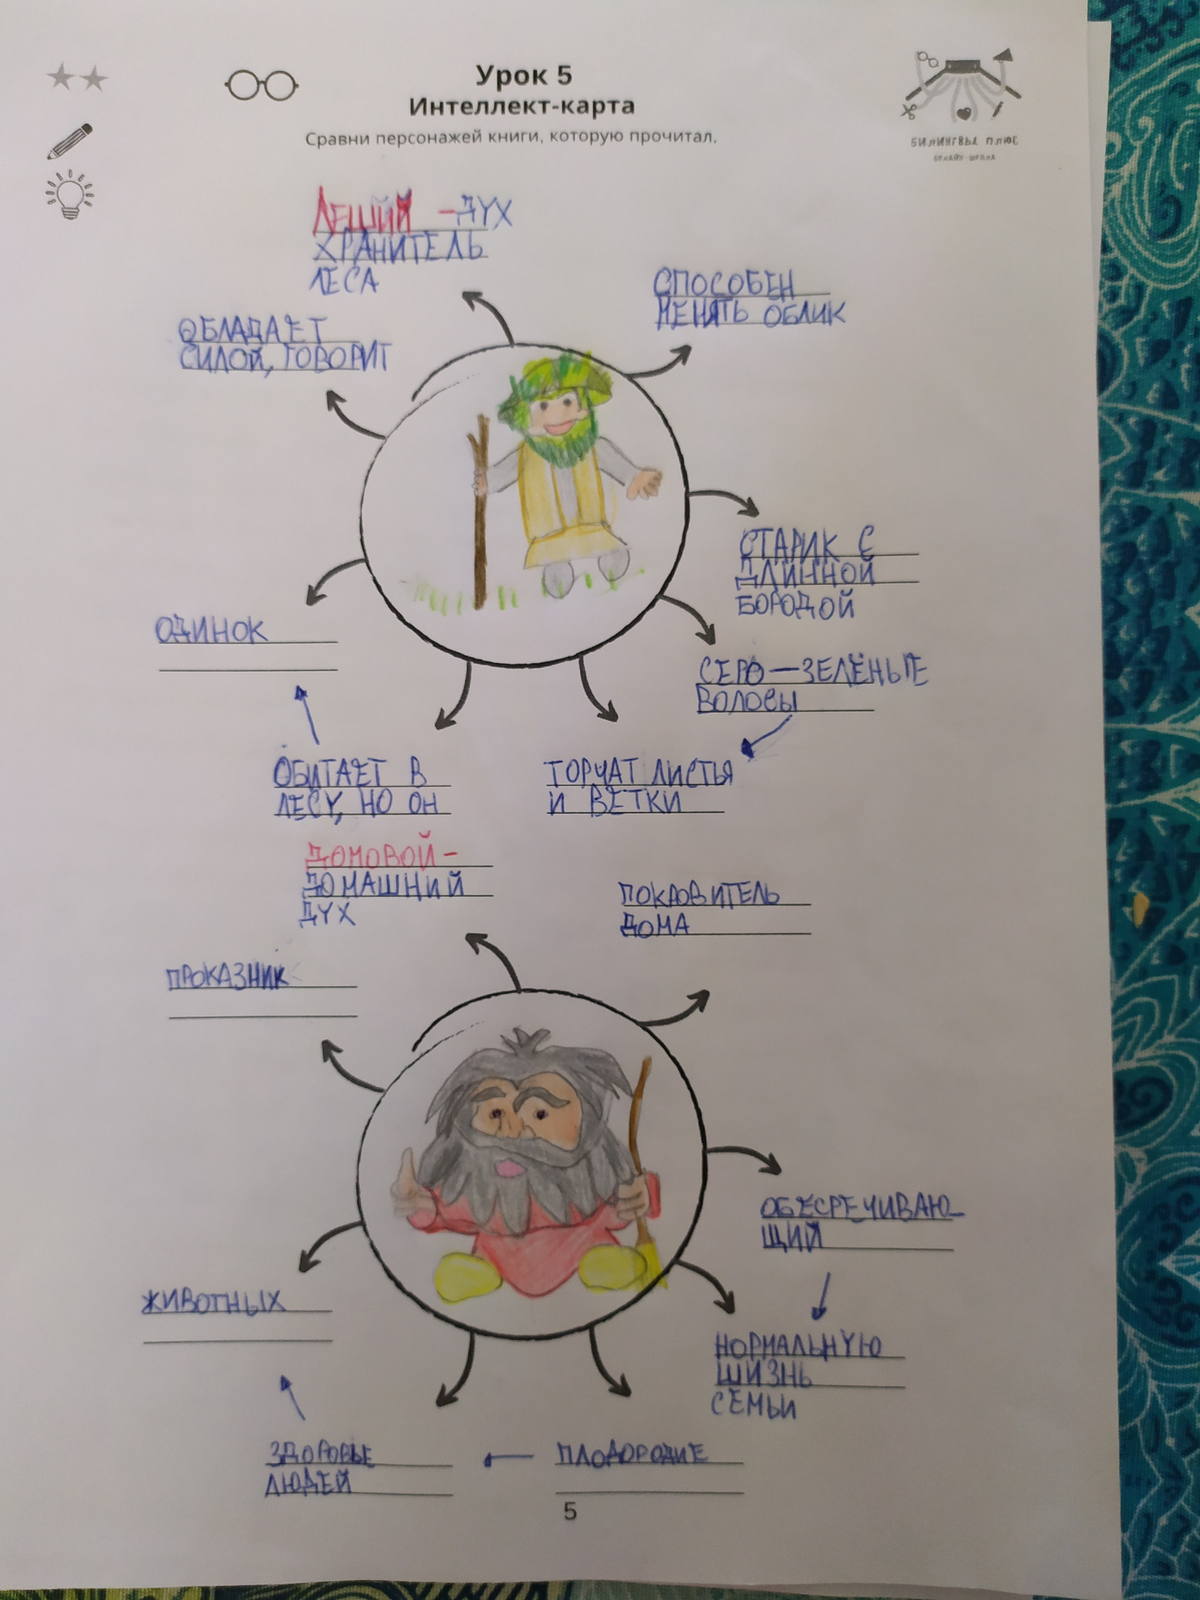 Урок 5
Интеллект-карта
Сравни персонажей книги, которую прочитал.
БИЛИНГВЫ ПЛЮС
ОНЛАЙН-ШКОЛА
ЛЕШИЙ - ДУХ
ХРАНИТЕЛЬ
ЛЕСА
СПОСОБЕН
МЕНЯТЬ ОБЛИК
ОБЛАДАЕТ
СИЛОЙ, ГОВОРИТ
СТАРИК С
ДЛИННОЙ
БОРОДОЙ
ОДИНОК
СЕРО-ЗЕЛЁНЫЕ
ВОЛОСЫ
ОБИТАЕТ В
ЛЕСУ, НО ОН
ТОРЧАТ ЛИСТЬЯ
И ВЕТКИ
ДОМОВОЙ -
ДОМАШНИЙ
ДУХ
ПОКРОВИТЕЛЬ
ДОМА
ПРОКАЗНИК
ОБЕСРЕЧИВАЮ-
ЩИЙ
ЖИВОТНЫХ
НОРМАЛЬНУЮ
ШИЗНЬ
СЕМЬИ
ЗДОРОВЬЕ
ЛЮДЕЙ
ПЛОДОРОДИЕ
5